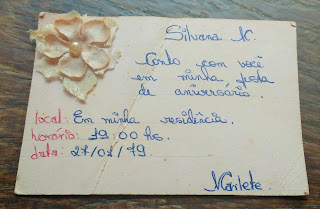 Silvana N.
Conto com você
em minha festa
de aniversário.
local: Em minha residência.
horário: 19:00 hs.
data: 27/01/79.
Marlete